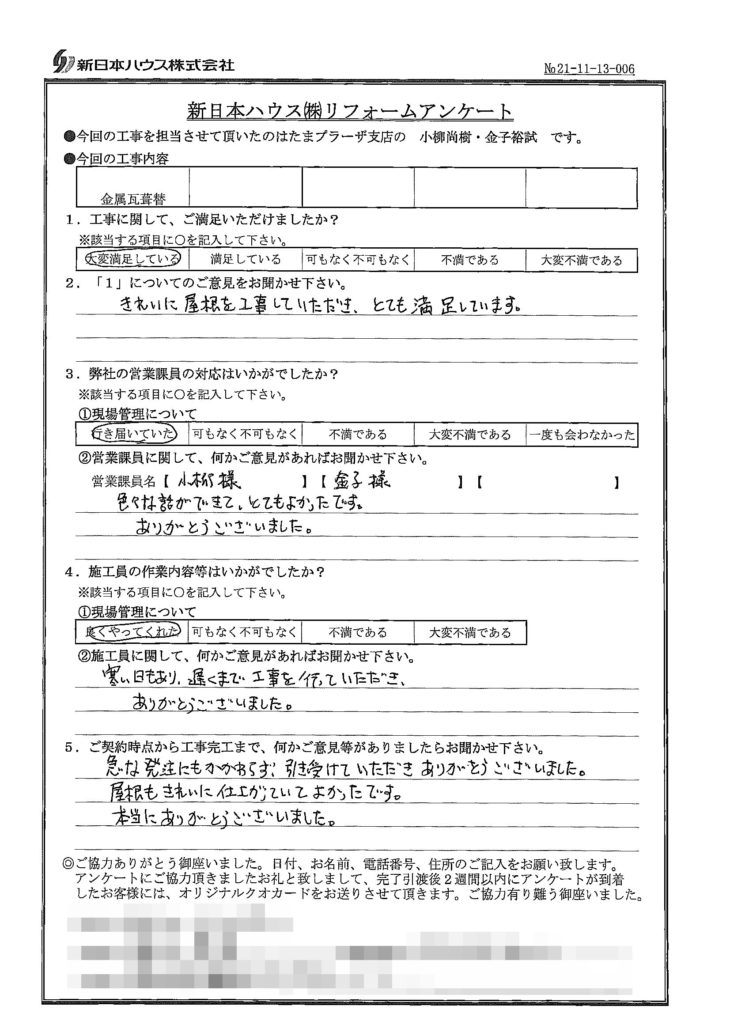 新日本ハウス株式会社
№21-11-13-006
新日本ハウス㈱リフォームアンケート
●今回の工事を担当させて頂いたのはたまプラーザ支店の 小柳尚樹・金子裕試 です。
●今回の工事内容
金属瓦葺替
1．工事に関して、ご満足いただけましたか？
※該当する項目に○を記入して下さい。
大変満足している 満足している 可もなく不可もなく 不満である 大変不満である
2．「1」についてのご意見をお聞かせ下さい。
きれいに屋根を工事していただき、とても満足しています。
3．弊社の営業課員の対応はいかがでしたか？
※該当する項目に○を記入して下さい。
①現場管理について
行き届いていた 可もなく不可もなく 不満である 大変不満である 一度も会わなかった
②営業課員に関して、何かご意見があればお聞かせ下さい。
営業課員名【 小柳様 】【 金子様 】【 】
色々な話ができて、とてもよかったです。
ありがとうございました。
4．施工員の作業内容等はいかがでしたか？
※該当する項目に○を記入して下さい。
①現場管理について
良くやってくれた 可もなく不可もなく 不満である 大変不満である
②施工員に関して、何かご意見があればお聞かせ下さい。
寒い日もあり、遅くまで工事を行っていただき、
ありがとうございました。
5．ご契約時点から工事完工まで、何かご意見等がありましたらお聞かせ下さい。
急な発注にもかかわらず、引き受けていただきありがとうございました。
屋根もきれいに仕上がっていてよかったです。
本当にありがとうございました。
◎ご協力ありがとう御座いました。日付、お名前、電話番号、住所のご記入をお願い致します。
アンケートにご協力頂きましたお礼と致しまして、完了引渡後２週間以内にアンケートが到着
したお客様には、オリジナルクオカードをお送りさせて頂きます。ご協力有り難う御座いました。